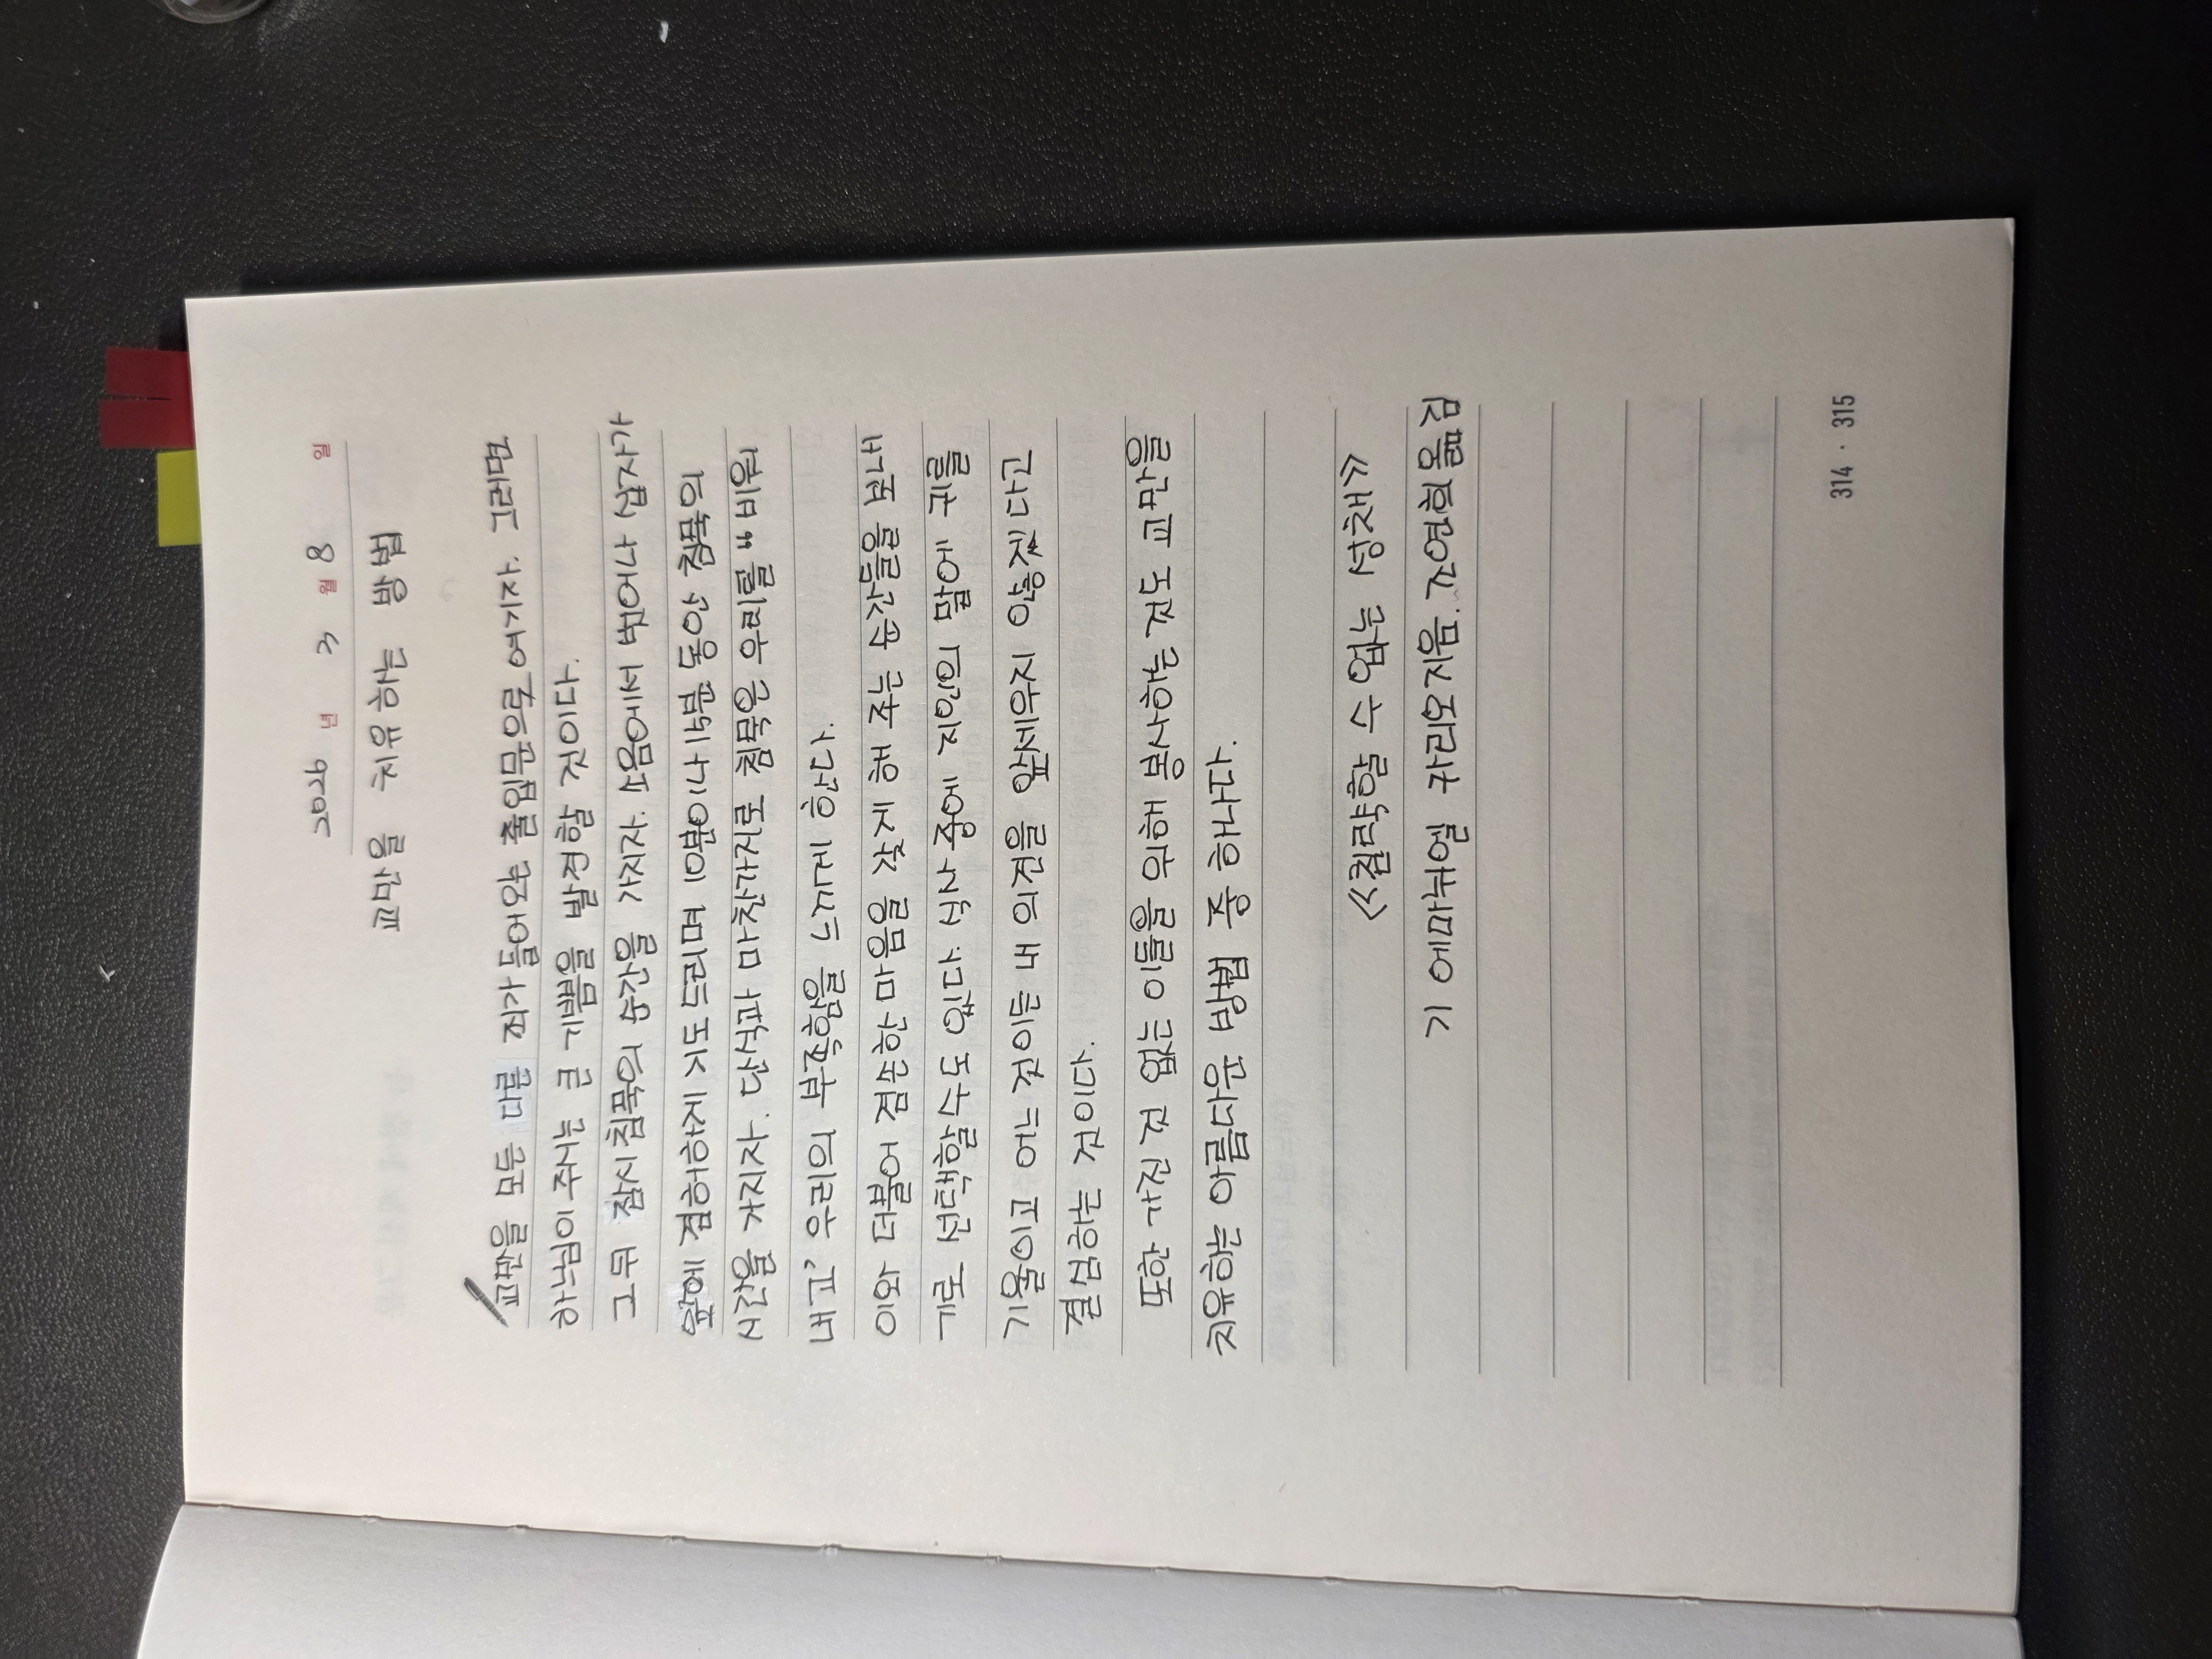 2026 년 3 월 8 일
교만을 치유하는 방법
교만을 모든 다른 죄가 들어와는 출입문으로 여기자. 그러면
하느님이 주시는 큰 기쁨을 발견할 것이다.
그두 잠시 침묵의 순간을 가지자. 소음에서 벗어나 십자가
앞에 겸허하게 기도 드리며 10분이나 15분 동안 침묵의
시간을 가지자. 단식과 마찬가지로 침묵은 우리를 " 비워
내고' 우리의 부족함을 느끼게 한다.
이와 더불어 겸손한 마음을 갖게 해 주는 순간들을 내적
기로 선택할 수도 있다. 식사 중에 지인의 말에 귀를
기울이고 어느 것이든 내 의견을 앞세우지 않겠다고
결심하는 것이다.
또한 가진 것 없는 이들을 위해 봉사하는 것도 교만을
치유하는 아름다운 방법 중 하나다.
<<침략할 수 없는 성채>>
기 에마뉘엘 카리오 지음. 조연희 옮김
314 · 315